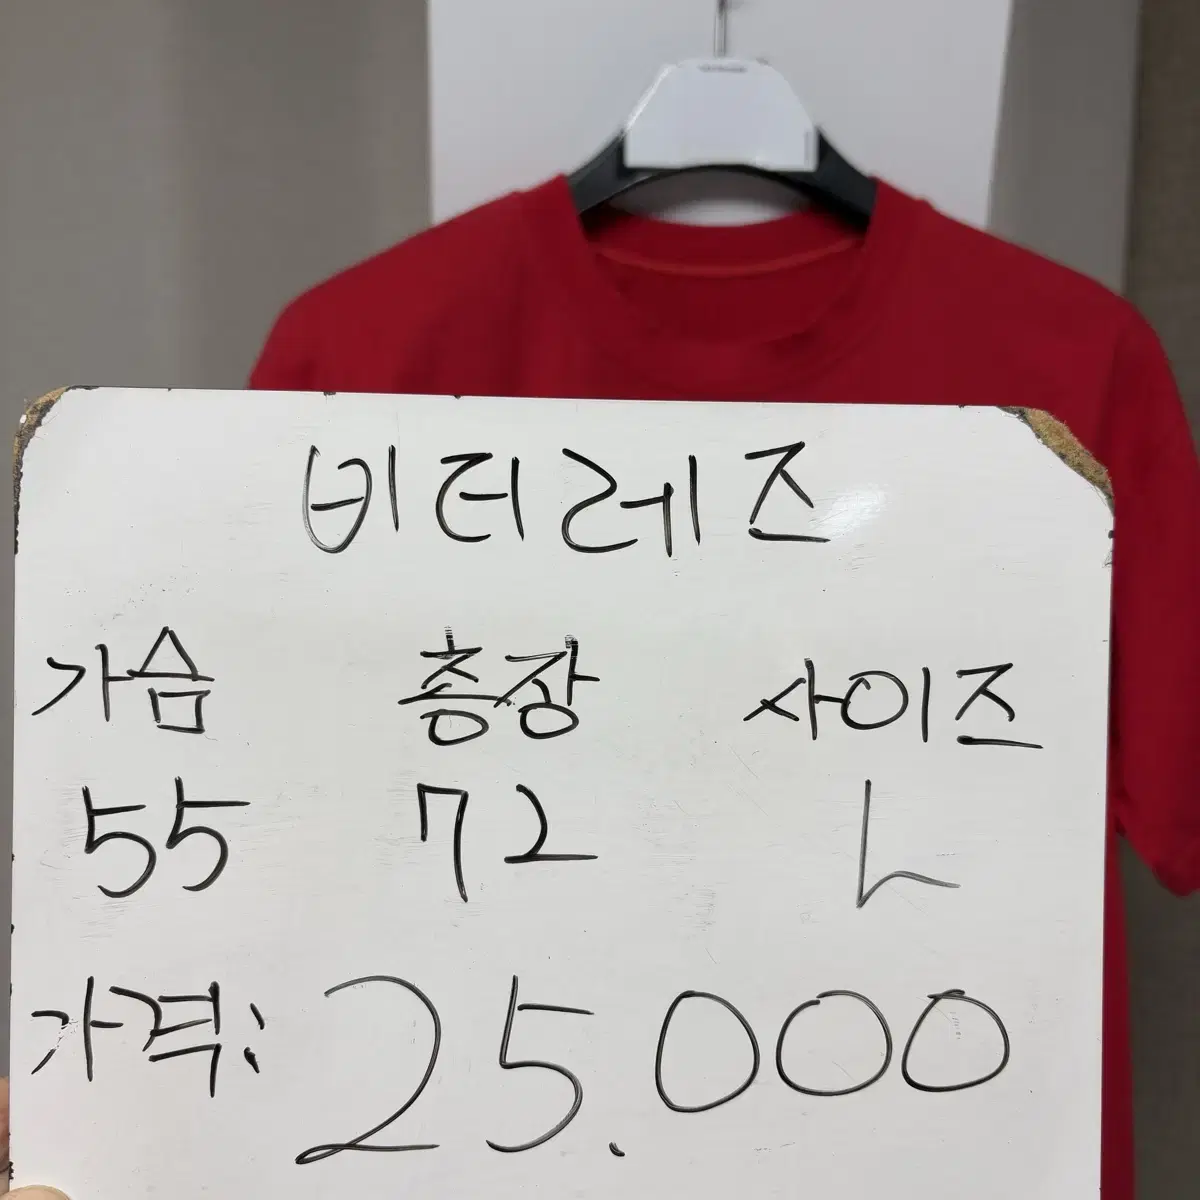 비터레즈
가슴 총장 사이즈
55 72 L
가격: 25.000